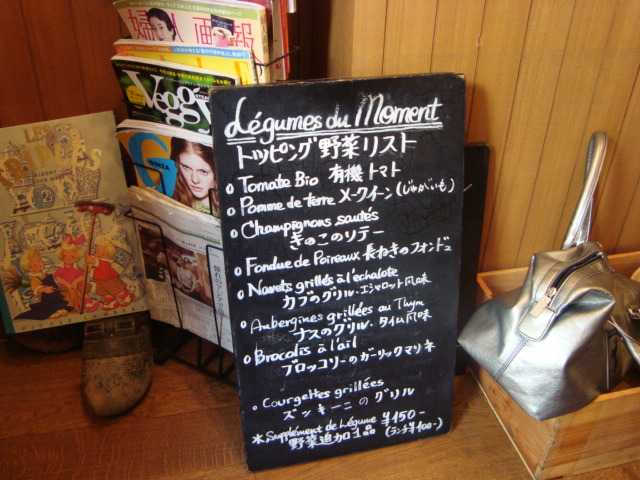 婦人画報
Veggy
GINZA
LES
Légumes du Moment
トッピング野菜リスト
Tomate Bio 有機トマト
Pomme de Terre メークイーン(じゃがいも)
Champignons sautés
きのこのソテー
Fondue de Poireaux 長ねぎのフォンデュ
Navets grillés à l'échalote
カブのグリル・エシャロット風味
Aubergines grillées au Thym
ナスのグリル・タイム風味
Brocolis à l'ail
ブロッコリーのガーリックマリネ
Courgettes grillées
ズッキーニのグリル
* Supplément de Légume ¥150-
野菜追加1品 (ランチ¥100-)